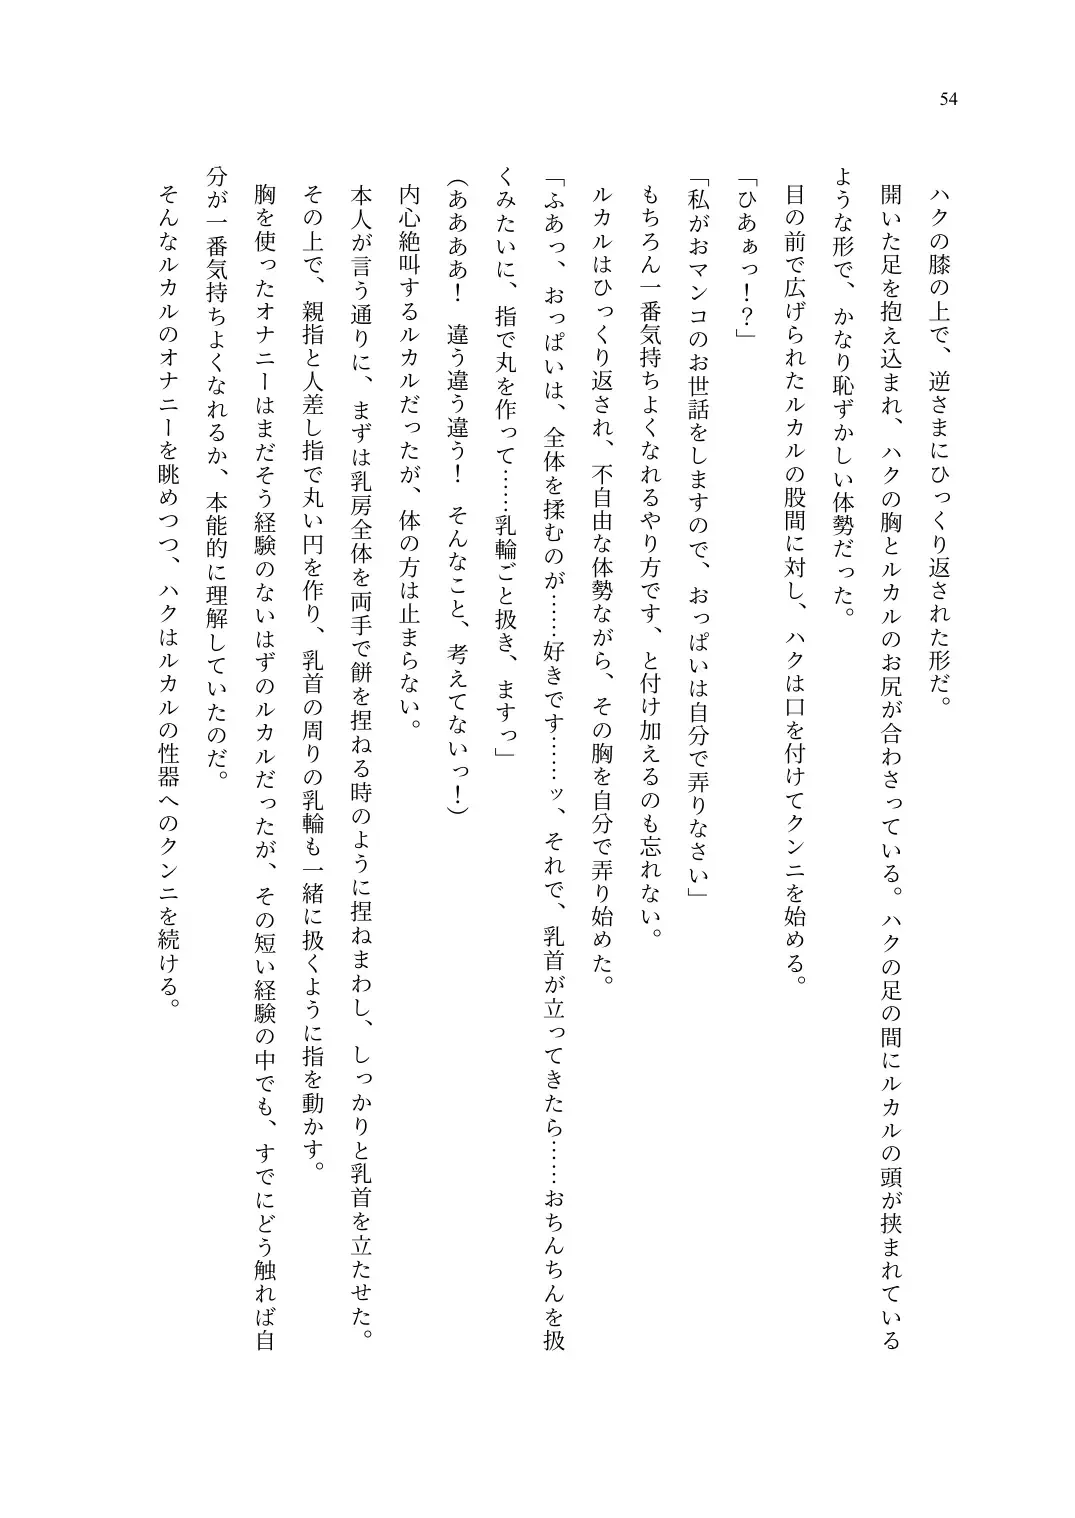 54
ハクの膝の上で、逆さまにひっくり返された形だ。
開いた足を抱え込まれ、ハクの胸とルカルのお尻が合わさっている。ハクの足の間にルカルの頭が挟まれている
ような形で、かなり恥ずかしい体勢だった。
目の前で広げられたルカルの股間に対し、ハクは口を付けてクンニを始める。
「ひあぁっ!?」
「私がおマンコのお世話をしますので、おっぱいは自分で弄りなさい」
もちろん一番気持ちよくなれるやり方です、と付け加えるのも忘れない。
ルカルはひっくり返され、不自由な体勢ながら、その胸を自分で弄り始めた。
「ふあっ、おっぱいは、全体を揉むのが……好きです……ッ、それで、乳首が立ってきたら……おちんちんを扱
くみたいに、指で丸を作って……乳輪ごと扱き、ますっ」
(ああああ! 違う違う違う! そんなこと、考えてないっ!)
内心絶叫するルカルだったが、体の方は止まらない。
本人が言う通りに、まずは乳房全体を両手で餅を捏ねる時のように捏ねまわし、しっかりと乳首を立たせた。
その上で、親指と人差し指で丸い円を作り、乳首の周りの乳輪も一緒に扱くように指を動かす。
胸を使ったオナニーはまだそう経験のないはずのルカルだったが、その短い経験の中でも、すでにどう触れば自
分が一番気持ちよくなれるか、本能的に理解していたのだ。
そんなルカルのオナニーを眺めつつ、ハクはルカルの性器へのクンニを続ける。